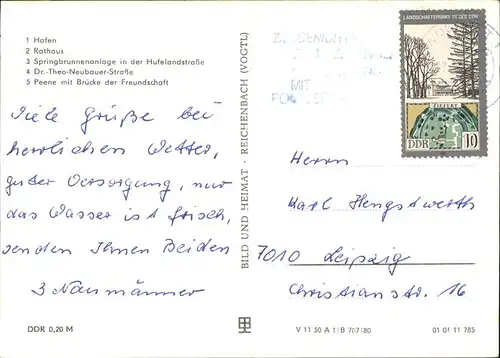 1 Hafen
2 Rathaus
3 Springbrunnenanlage in der Hufelandstraße
4 Dr.-Theo-Neubauer-Straße
5 Peene mit Brücke der Freundschaft
Viele Grüße bei
herrlichen Wetter,
guter Versorgung, nur
das Wasser ist frisch,
senden Ihnen Beiden
3 Naumänner
DDR 0,20 M
BILD UND HEIMAT · REICHENBACH (VOGTL)
LANDSCHAFTSPARKS IN DER DDR
DDR 10
MIT
Herrn
Karl Hengstwerth
7010 Leipzig
Christianstr. 16
V 11 50 A 1/B 707/80
01 01 11 785